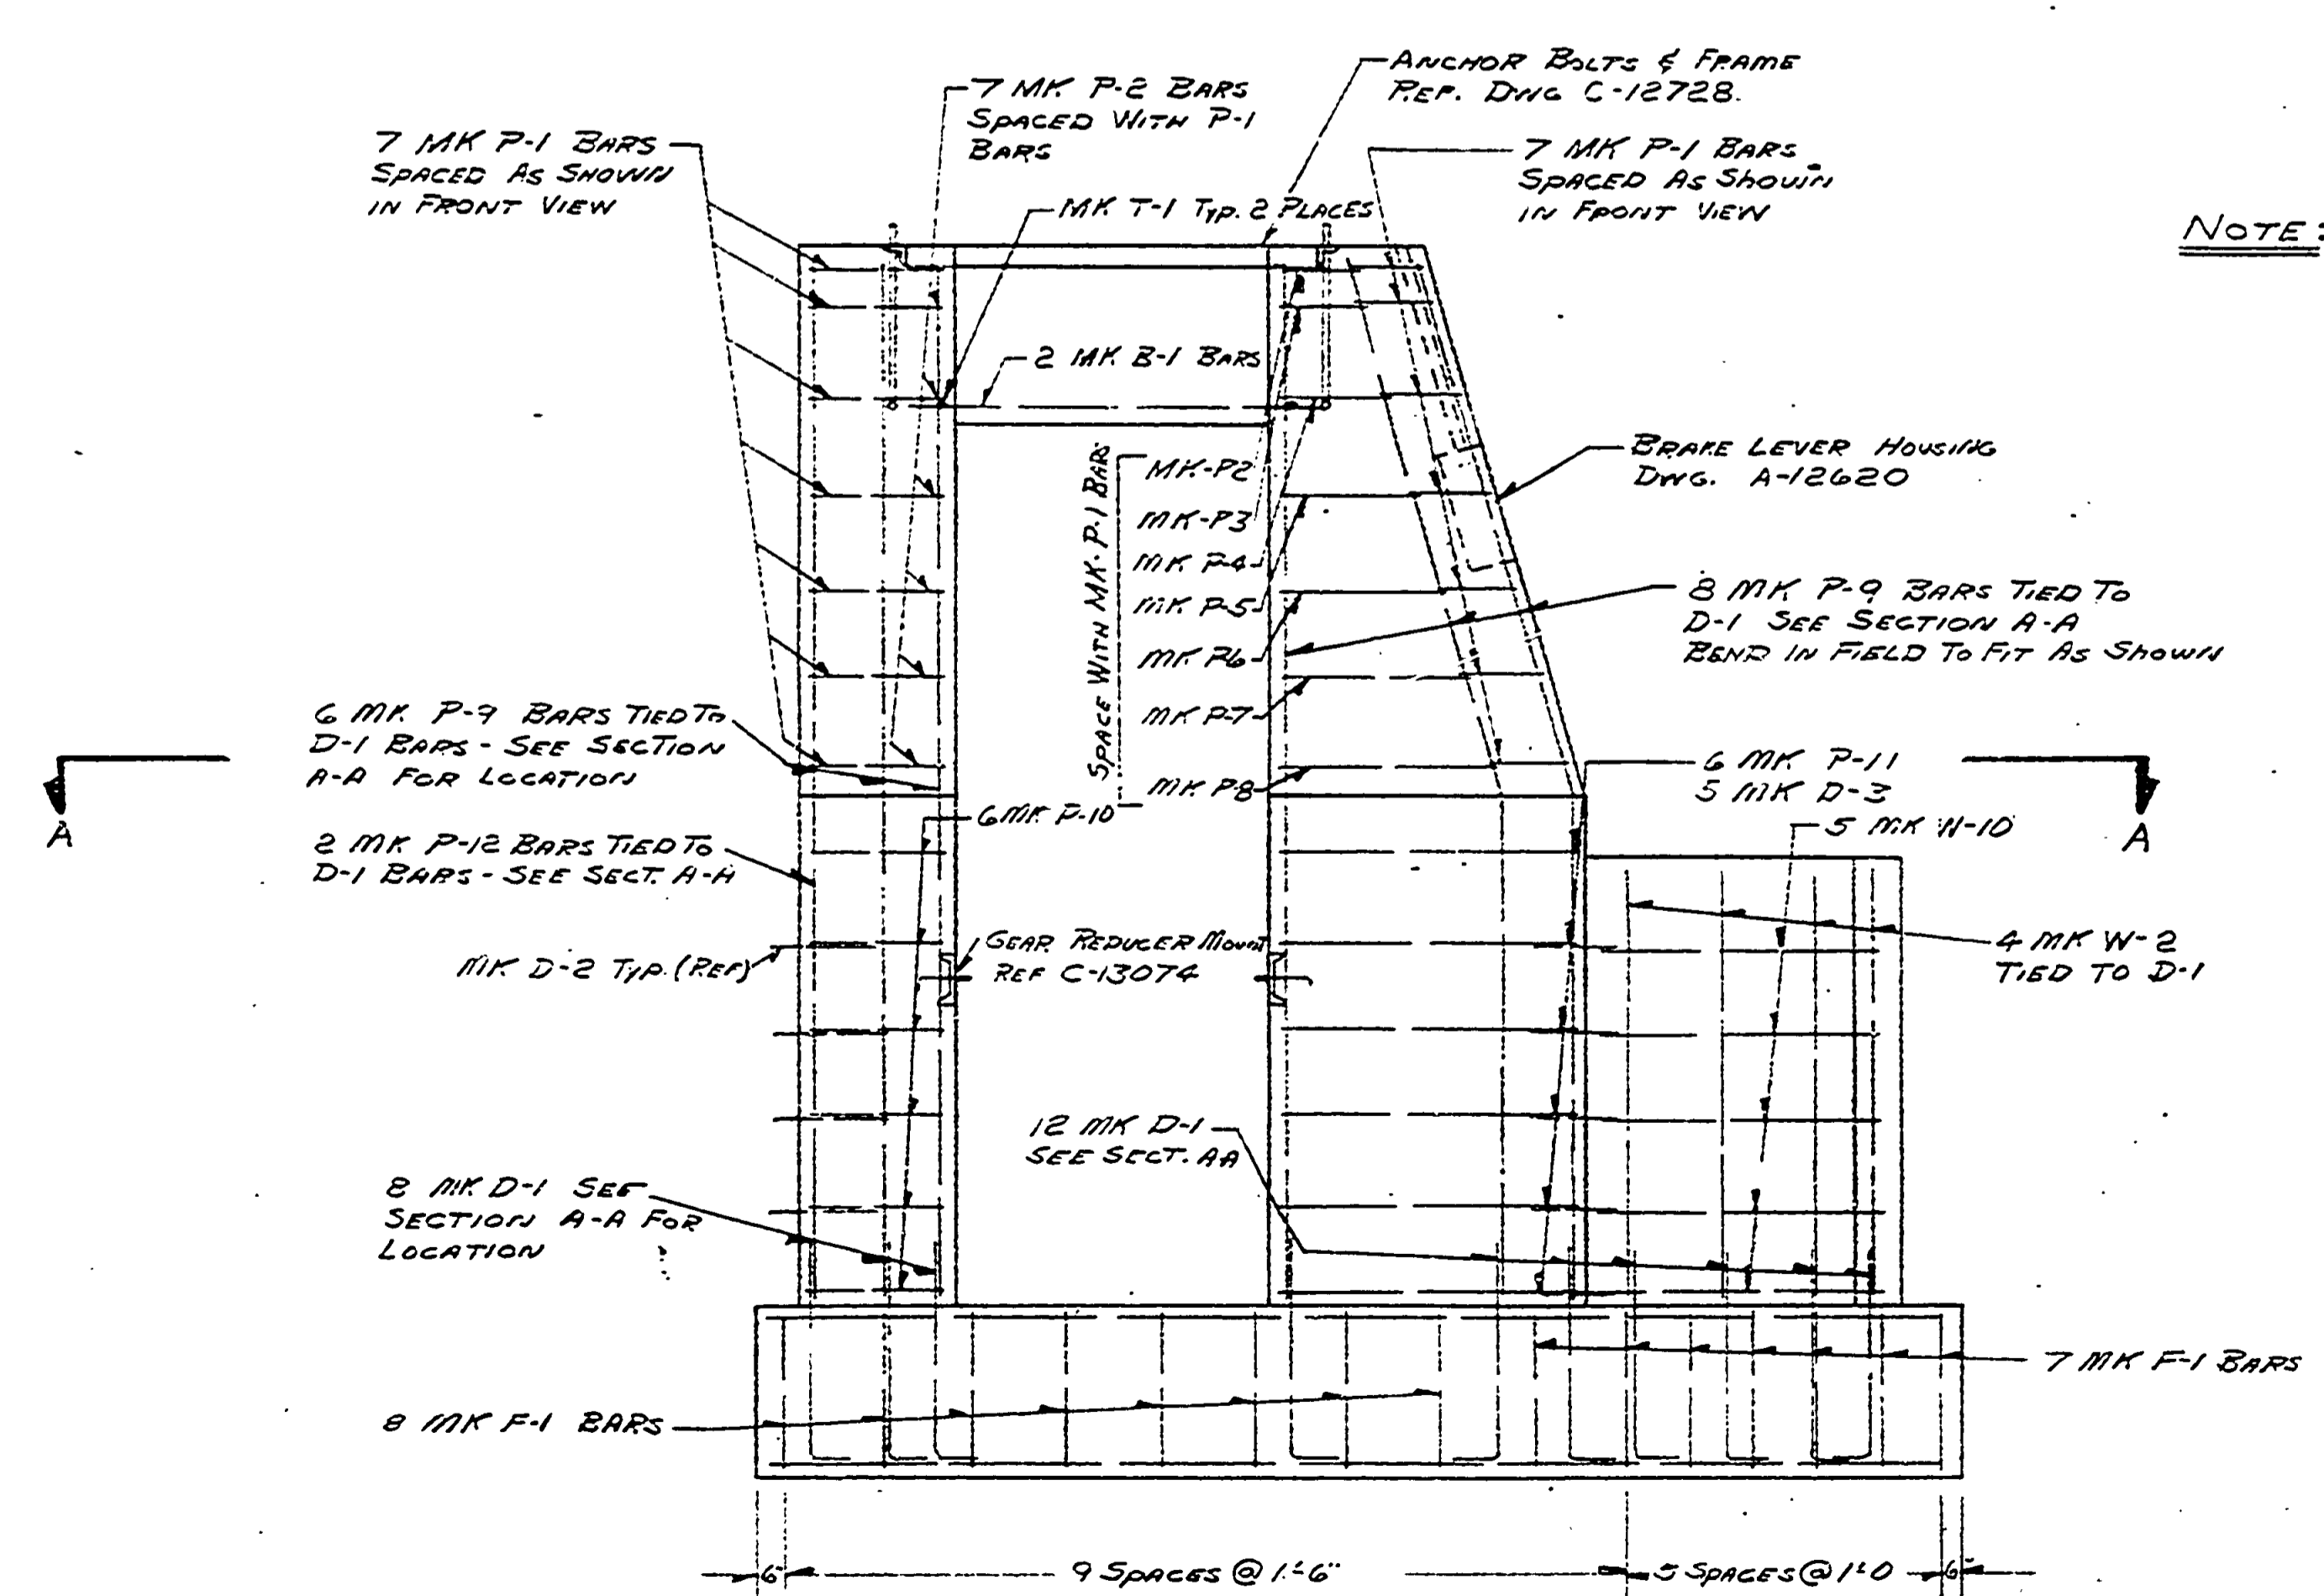 ANCHOR BOLTS & FRAME
REF. DWG C-12728.
7 MK P-2 BARS
SPACED WITH P-1
BARS
7 MK P-1 BARS
SPACED AS SHOWN
IN FRONT VIEW
7 MK P-1 BARS
SPACED AS SHOWN
IN FRONT VIEW
MK T-1 TYP. 2 PLACES
NOTE:
2 MK B-1 BARS
BRAKE LEVER HOUSING
DWG. A-12620
SPACE WITH MK. P-1 BARS
MK-P2
MK-P3
MK P-4
MK P-5
MK P6
MK P-7
MK P-8
8 MK P-9 BARS TIED TO
D-1 SEE SECTION A-A
BEND IN FIELD TO FIT AS SHOWN
6 MK P-9 BARS TIED TO
D-1 BARS - SEE SECTION
A-A FOR LOCATION
6 MK P-11
5 MK D-3
A
A
6 MK P-10
5 MK W-10
2 MK P-12 BARS TIED TO
D-1 BARS - SEE SECT. A-A
MK D-2 TYP. (REF)
GEAR REDUCER MOUNT
REF C-13074
4 MK W-2
TIED TO D-1
12 MK D-1
SEE SECT. AA
8 MK D-1 SEE
SECTION A-A FOR
LOCATION
7 MK F-1 BARS
8 MK F-1 BARS
6" 9 SPACES @ 1'-6" 5 SPACES @ 1'-0 6"